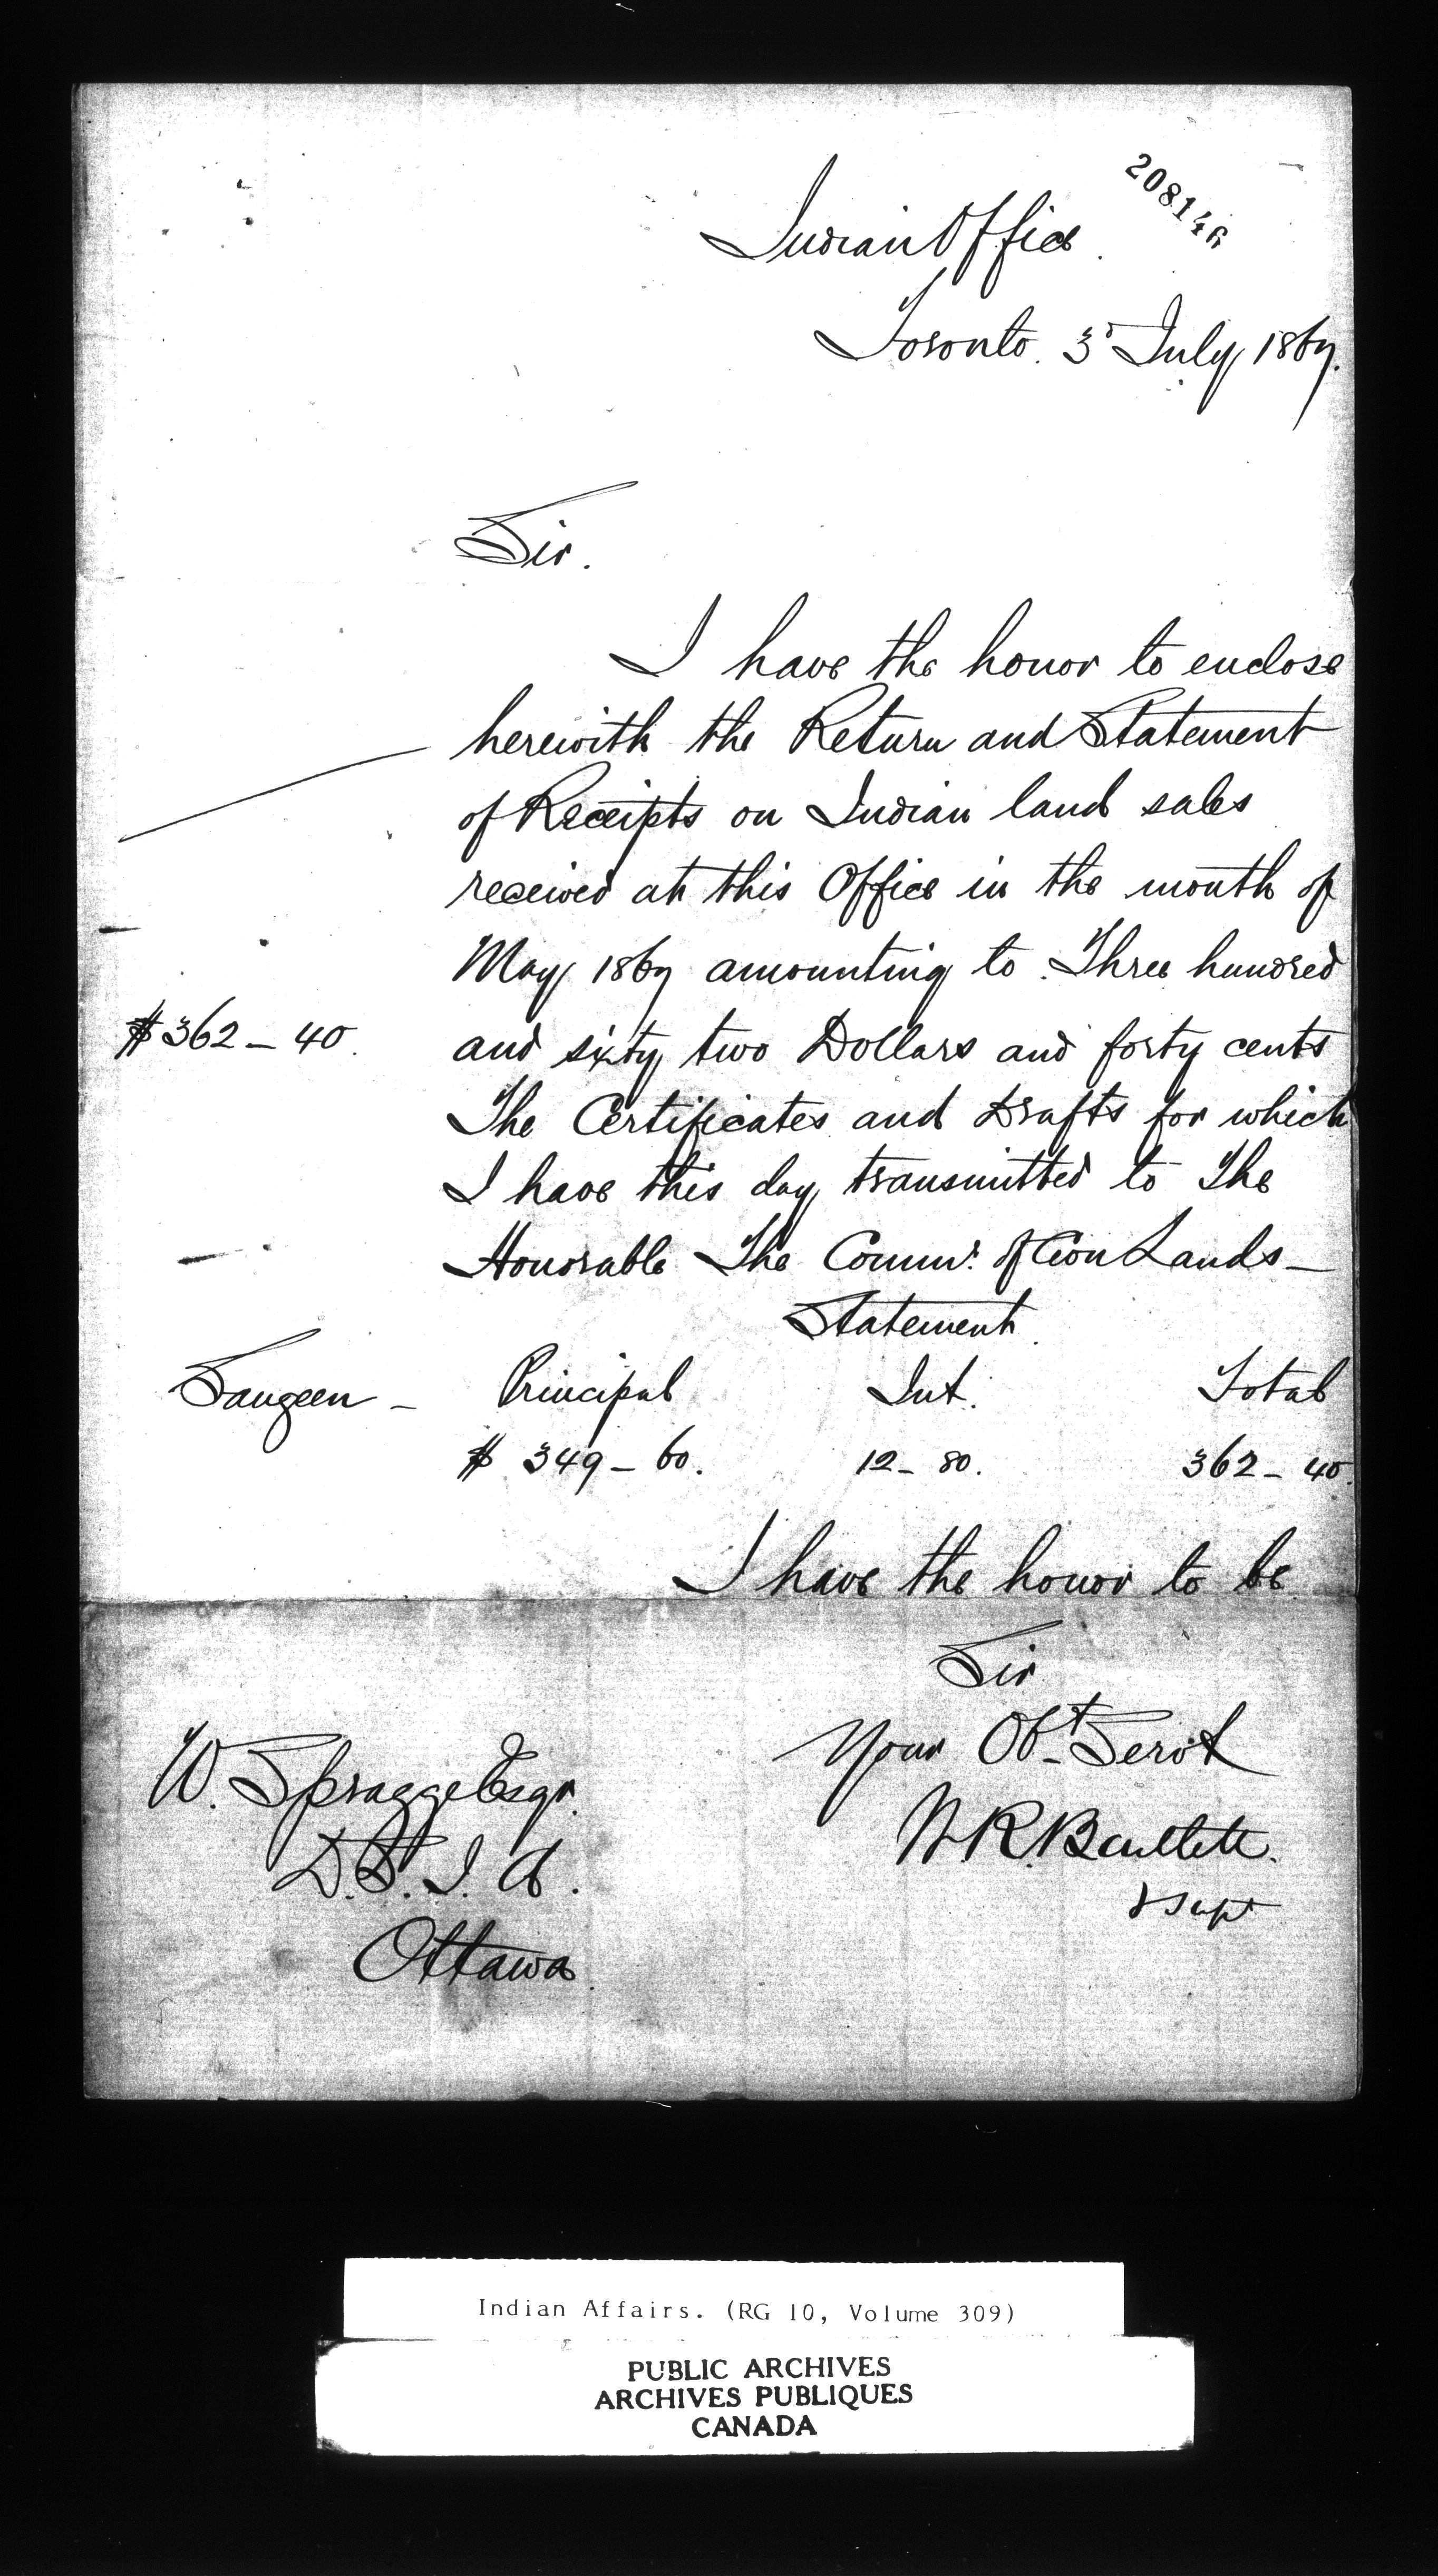 208146
Indian Office.
Toronto. 3d July 1867.
Sir.
I have the honor to enclose
herewith the Return and Statement
of Receipts on Indian land sales
received at this Office in the month of
May 1867 amounting to Three hundred
$362 – 40. and sixty two Dollars and forty cents
The Certificates and Drafts for which
I have this day transmitted to The
Honorable The Commr. of Crown Lands –
Statement.
Saugeen – Principal Int. Total
$ 349 – 60. 12 – 80. 362 – 40.
I have the honor to be
Sir
Your Obt Servt
W. Spragge Esqr.
W R Bartlett.
D. S. I. A.
Supt
Ottawa
Indian Affairs. (RG 10, Volume 309)
PUBLIC ARCHIVES
ARCHIVES PUBLIQUES
CANADA